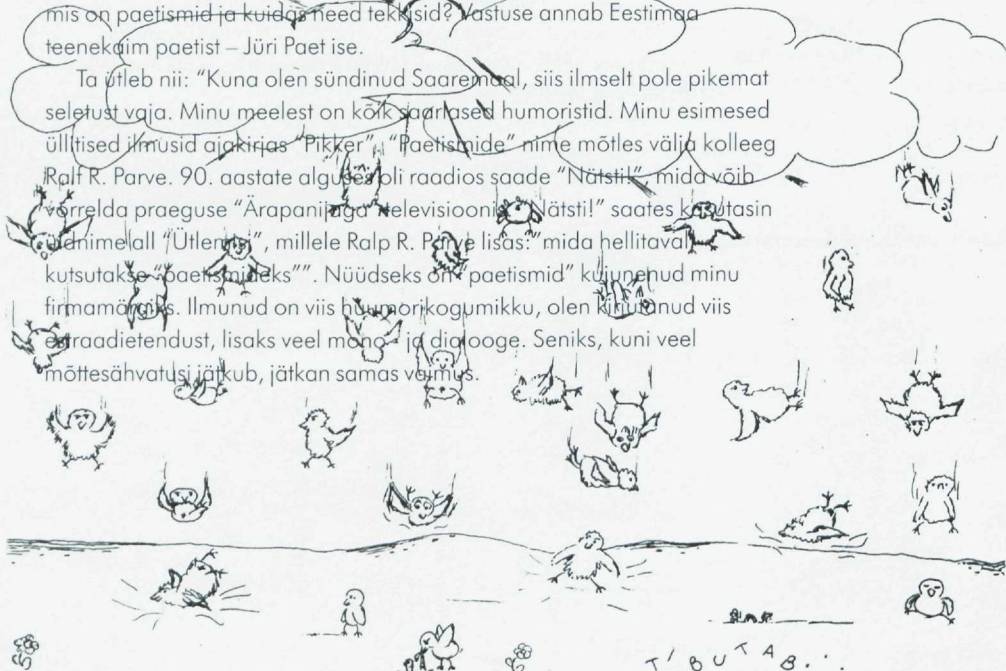 mis on paetismid ja kuidas need tekkisid? Vastuse annab Eestimaa
teenekaim paetist – Jüri Paet ise.
Ta ütleb nii: “Kuna olen sündinud Saaremaal, siis ilmselt pole pikemat
seletust vaja. Minu meelest on kõik saarlased humoristid. Minu esimesed
üllitised ilmusid ajakirjas “Pikker”. “Paetismide” nime mõtles välja kolleeg
Ralf R. Parve. 90. aastate alguses oli raadios saade “Nätsti!”, mida võib
võrrelda praeguse “Ärapanijaga” televisioonis. “Nätsti!” saates kasutasin
üldnime all “Ütlemisi”, millele Ralp R. Parve lisas:” mida hellitavalt
kutsutakse “paetismideks””. Nüüdseks on “paetismid” kujunenud minu
firmamärgiks. Ilmunud on viis huumorikogumikku, olen kirjutanud viis
estraadietendust, lisaks veel mono- ja dialooge. Seniks, kuni veel
mõttesähvatusi jätkub, jätkan samas vaimus.
TIBUTAB...